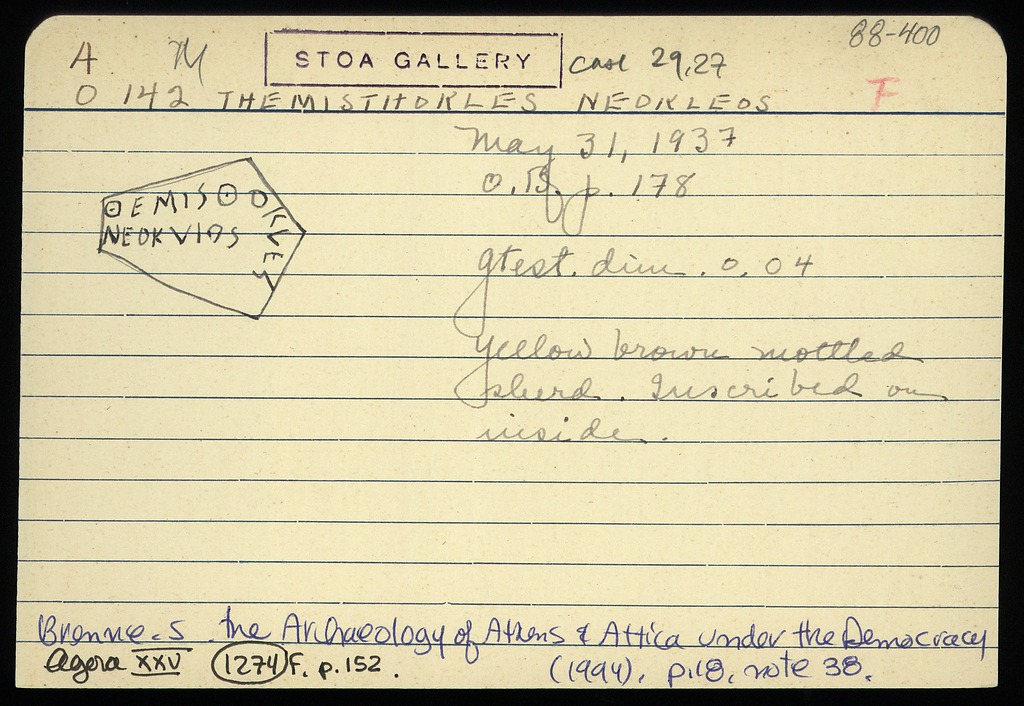 88-400
A M STOA GALLERY case 29,27
O 142 THEMISTHOKLES NEOKLEOS F
May 31, 1937
O.B. p. 178
ΘEMISΘOKLES
NEOKVIOS
gtest. dim. 0.04
Yellow brown mottled
sherd. Inscribed on
inside.
Brenne, S. the Archaeology of Athens & Attica under the Democracy
Agora XXV 1274 F. p.152. (1994), p.18, note 38.